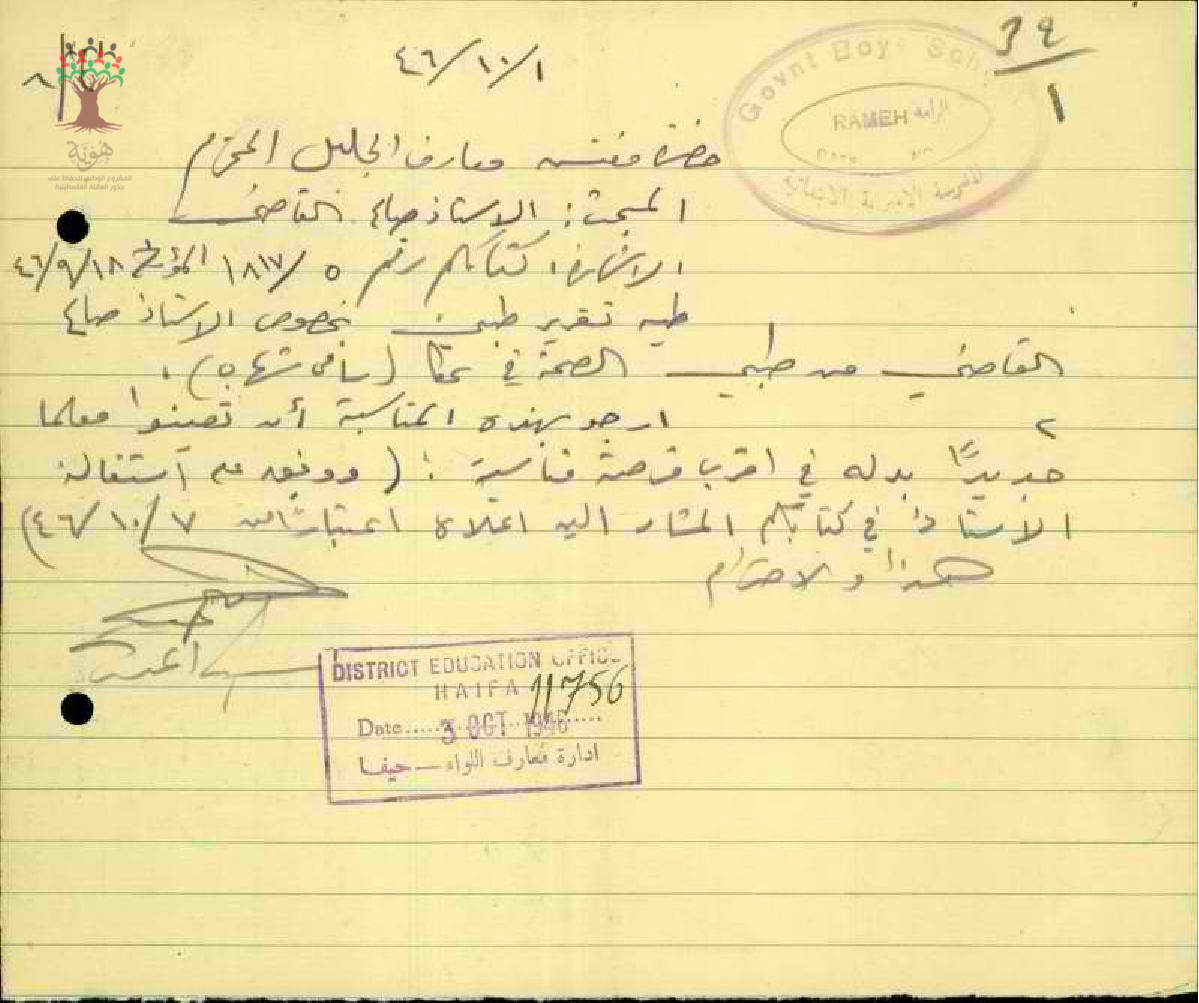 39
1
٤٦/١٠/١
Govnt Boys School
RAMEH الرامة
DATE NO
هوية
المشروع الوطني للحفاظ على
جذور العائلة الفلسطينية
حضرة مفتش معارف الجليل المحترم
المبحث: الاستاذ صالح القاضي
الاشارة: كتابكم رقم ١٨١٧/٥ المؤرخ ٤٦/٩/١٨
طيه تقرير طبي بخصوص الاستاذ صالح
القاضي من طبيب الصحة في عكا
٢ ارجو بهذه المناسبة أن تعينوا معلما
جديدًا بدله في اقرب فرصة مناسبة: (ووفق على استقالة
الأستاذ في كتابكم المشار اليه اعلاه اعتبارًا من ٤٦/١٠/٧)
هذا والاحترام
DISTRICT EDUCATION OFFICE
HAIFA 11756
Date 3 OCT 1946
ادارة معارف اللواء – حيفا